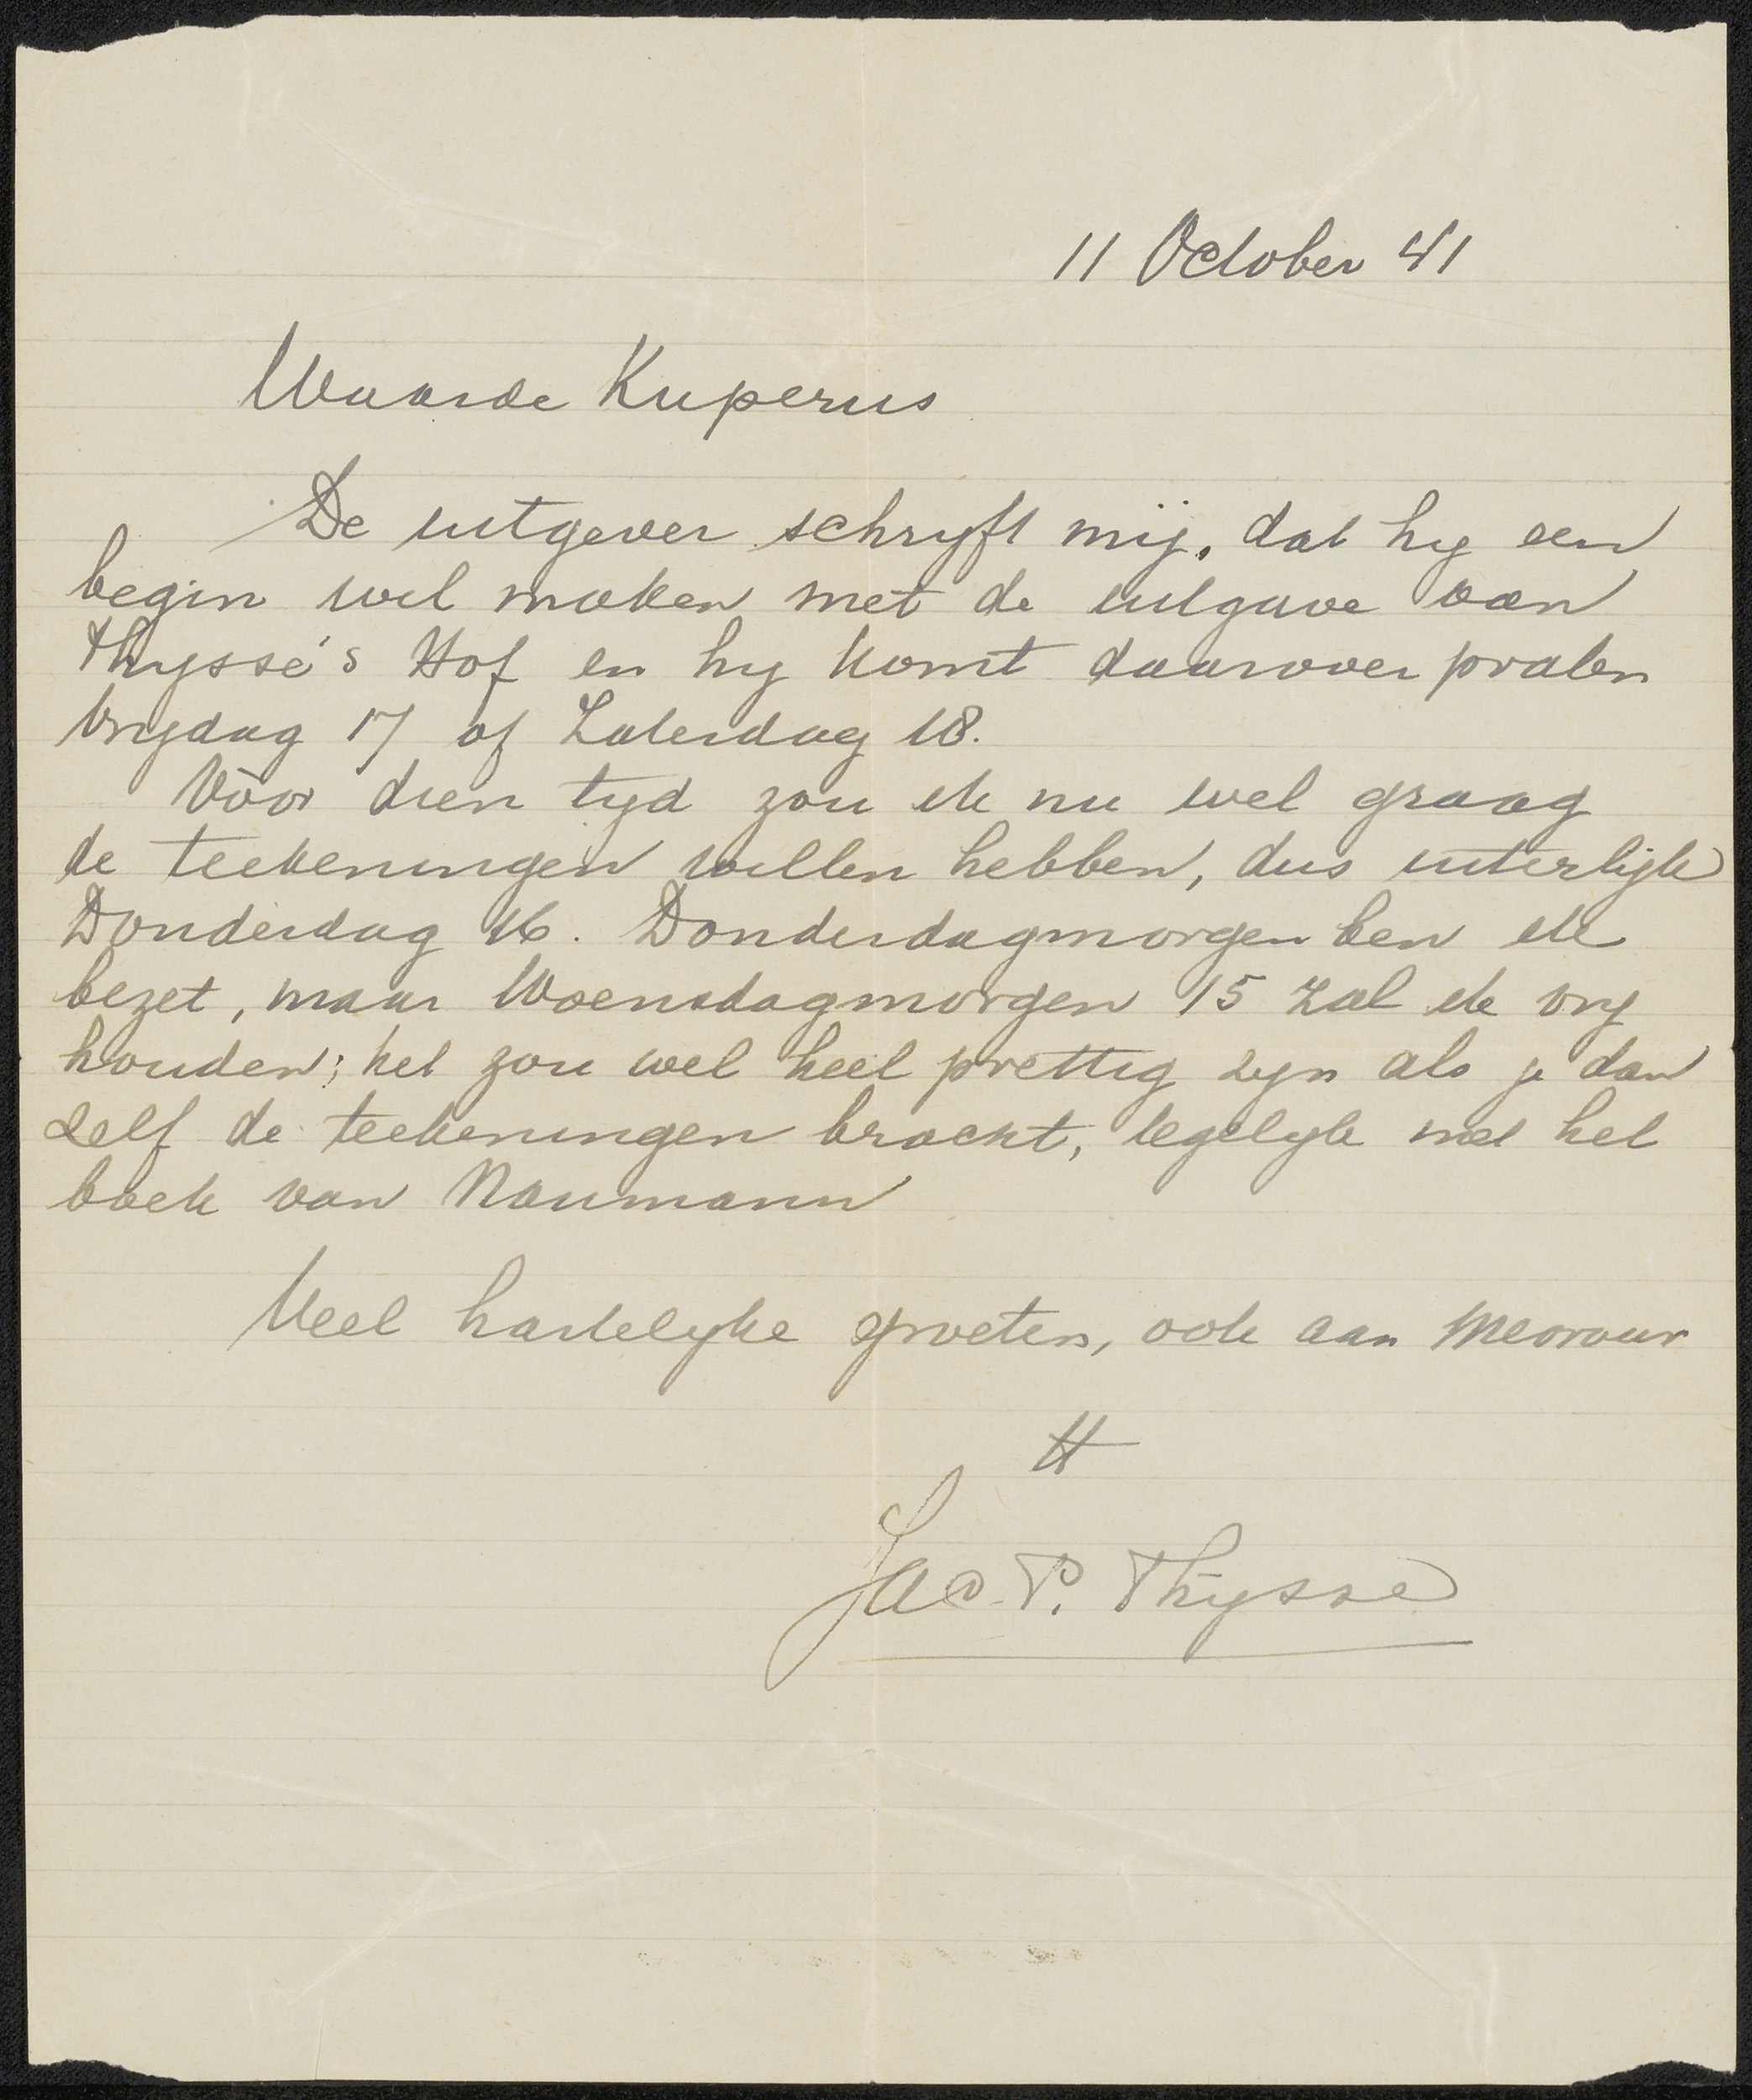 11 October 41
Waarde Kuperus
De uitgever schryft mij, dat hy een
begin wil maken met de uitgave van
Thysse's Hof en hy komt daarover praten
Vrijdag 17 of Zaterdag 18.
Vóór dien tyd zou ik nu wel graag
de teekeningen willen hebben, dus uiterlijk
Donderdag 16. Donderdagmorgen ben ik
bezet, maar Woensdagmorgen 15 zal ik vry
houden; het zou wel heel prettig zyn als je dan
zelf de teekeningen bracht, tegelyk met het
boek van Naumann
Veel hartelyke groeten, ook aan Mevrouw
tt
Jac. P. Thysse